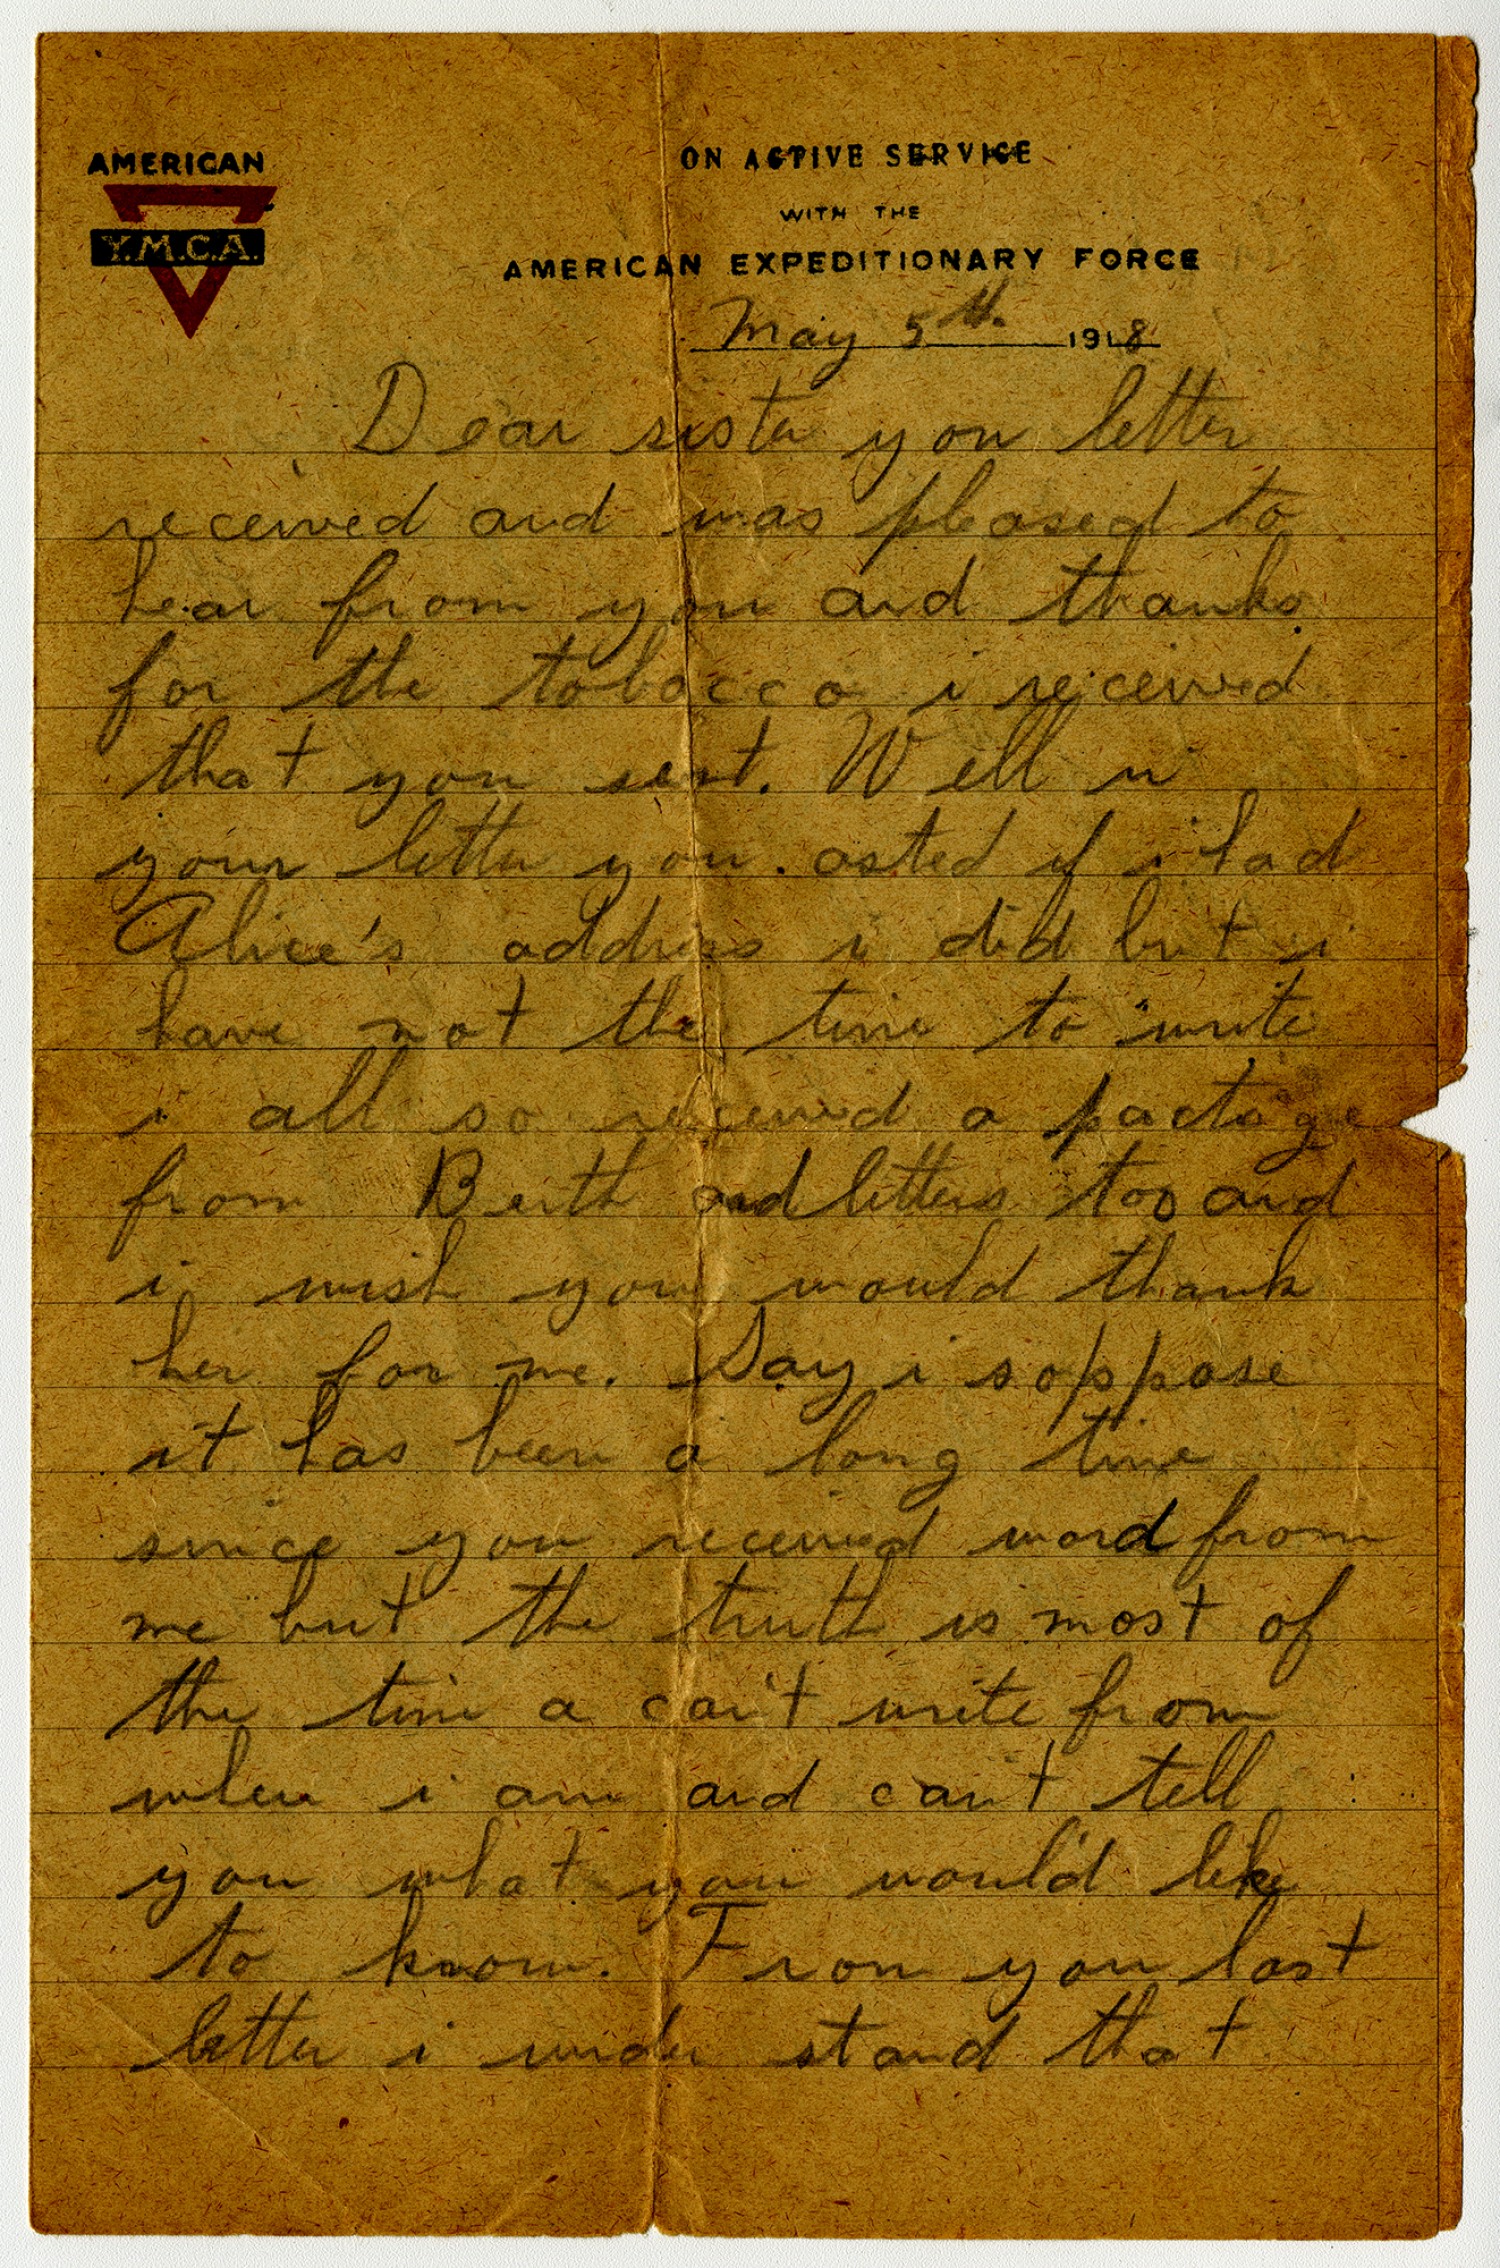 AMERICAN
Y.M.C.A.
ON ACTIVE SERVICE
WITH THE
AMERICAN EXPEDITIONARY FORCE
May 5th. 1918
Dear sister you letter
received and was pleased to
hear from you and thanks
for the tobocco i received
that you sent. Well in
your letter you asted if i had
Alice's address i did but i
have not the time to write
i all so received a pactage
from Berth and letters too and
i wish you would thank
her for me. Say i soppose
it has been a long time
since you received word from
me but the truth is most of
the time a can't write from
where i am and can't tell
you what you would like
to know. From you last
letter i under stand that